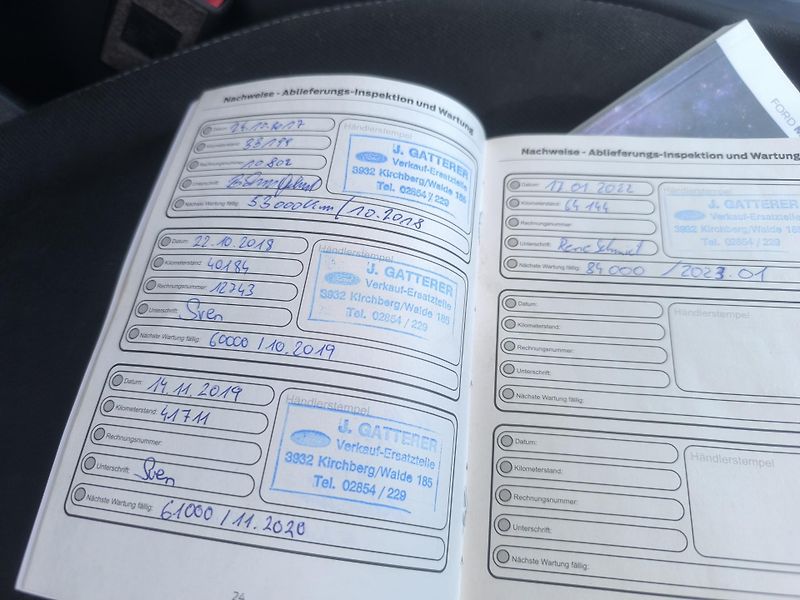 Nachweise - Ablieferungs-Inspektion und Wartung
Datum:
Kilometerstand: 33199
Rechnungsnummer: 10802
Unterschrift:
Nächste Wartung fällig: 53000km / 10.2018
Händlerstempel
J. GATTERER
Ford
Verkauf-Ersatzteile
3932 Kirchberg/Walde 185
Tel. 02854 / 229
Datum: 22.10.2018
Kilometerstand: 40184
Rechnungsnummer: 12743
Unterschrift: Sven
Nächste Wartung fällig: 60000 / 10.2019
Händlerstempel
J. GATTERER
Ford
Verkauf-Ersatzteile
3932 Kirchberg/Walde 185
Tel. 02854 / 229
Datum: 14.11.2019
Kilometerstand: 41711
Rechnungsnummer:
Unterschrift: Sven
Nächste Wartung fällig: 61000 / 11.2020
Händlerstempel
J. GATTERER
Ford
Verkauf-Ersatzteile
3932 Kirchberg/Walde 185
Tel. 02854 / 229
24
Nachweise - Ablieferungs-Inspektion und Wartung
Datum: 17.01.2022
Kilometerstand: 64144
Rechnungsnummer:
Unterschrift: Rene Schmid
Nächste Wartung fällig: 84000 / 2023.01
J. GATTERER
Verkauf-Ersatzteile
3932 Kirchberg/Walde
Tel. 02854 / 229
Datum:
Kilometerstand:
Rechnungsnummer:
Unterschrift:
Nächste Wartung fällig:
Händlerstempel
Datum:
Kilometerstand:
Rechnungsnummer:
Unterschrift:
Nächste Wartung fällig:
Händlerstempel
FORD